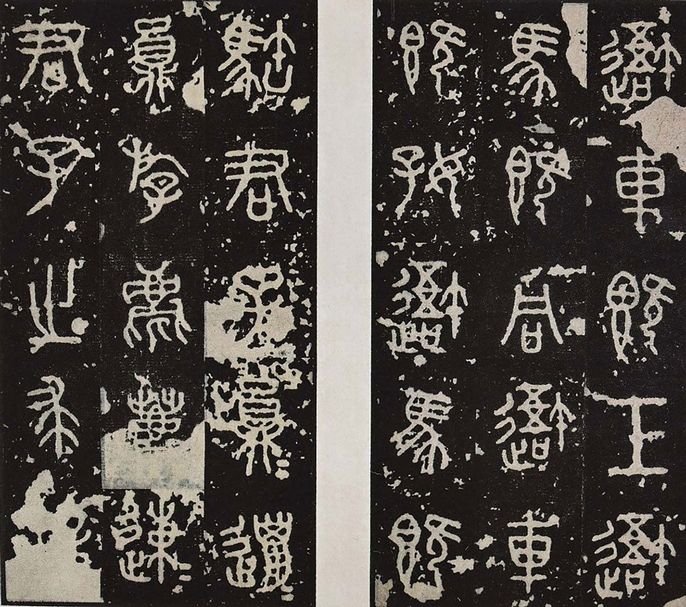 䢒車既工䢒
馬既同䢒車
既好䢒馬既
駐君子員邋
員斿麀鹿速
君子之求